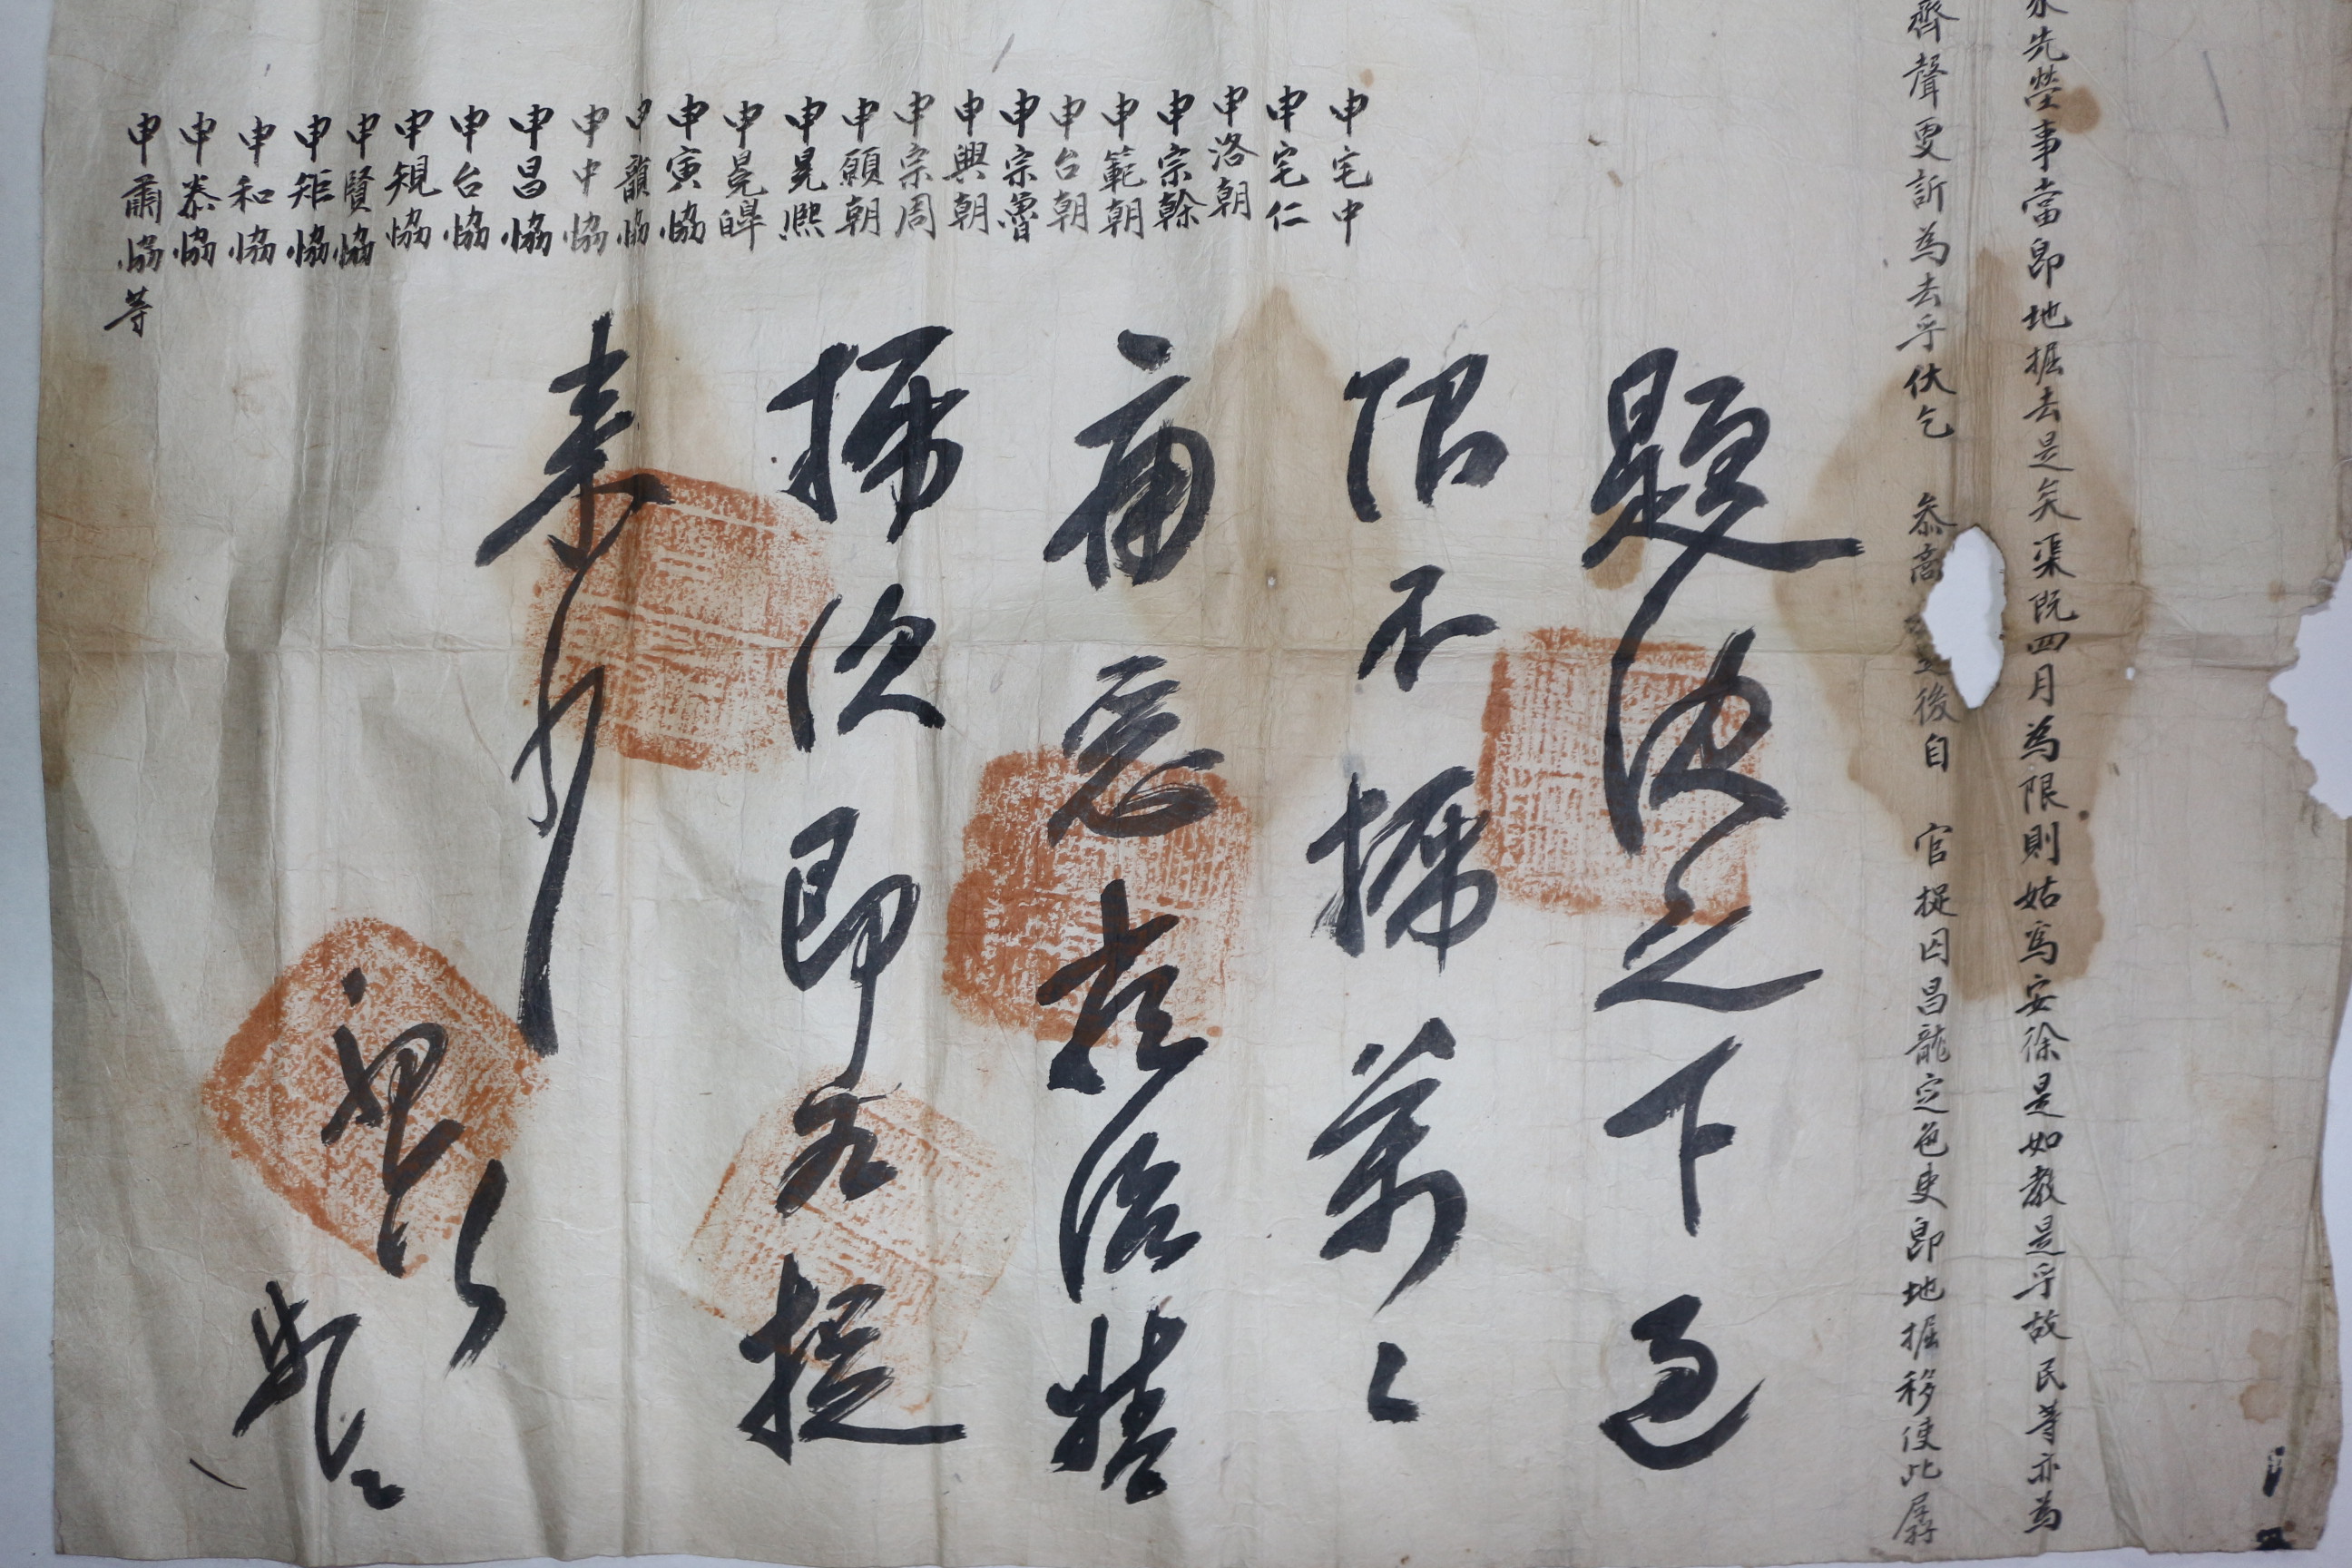 先塋事當卽地掘去是矣渠旣四月爲限則姑爲安徐是如敎是乎故民等亦爲
齊聲更訴爲去乎伏乞 叅商 後自 官捉囚昌龍定色吏卽地掘移使此孱
申宅中
申宅仁
申洛朝
申宗榦
申範朝
申台朝
申宗魯
申興朝
申宗周
申願朝
申晃熙
申晃皥
申寅協
申龍協
申中協
申昌協
申台協
申規協
申賢協
申矩協
申和協
申泰協
申肅協等
題決之下過
限不掘萬〻
痛惡嚴治督
掘次卽爲捉
來事